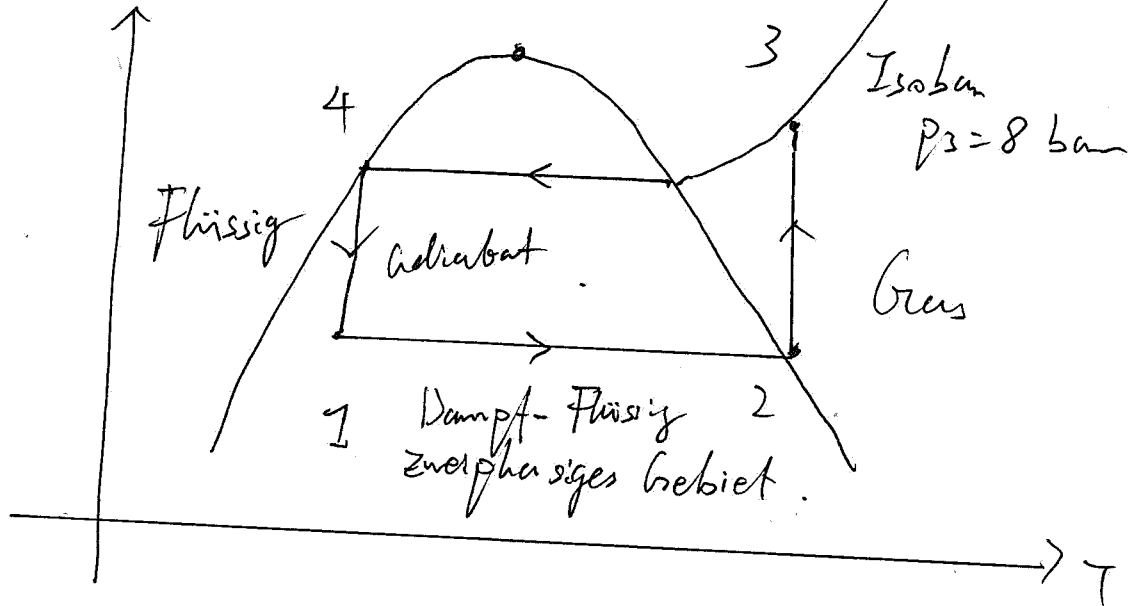 3
Isobar
p3 = 8 bar
4
Flüssig
adiabat
Gas
1
Dampf-Flüssig
2
zweiphasiges Gebiet.
T